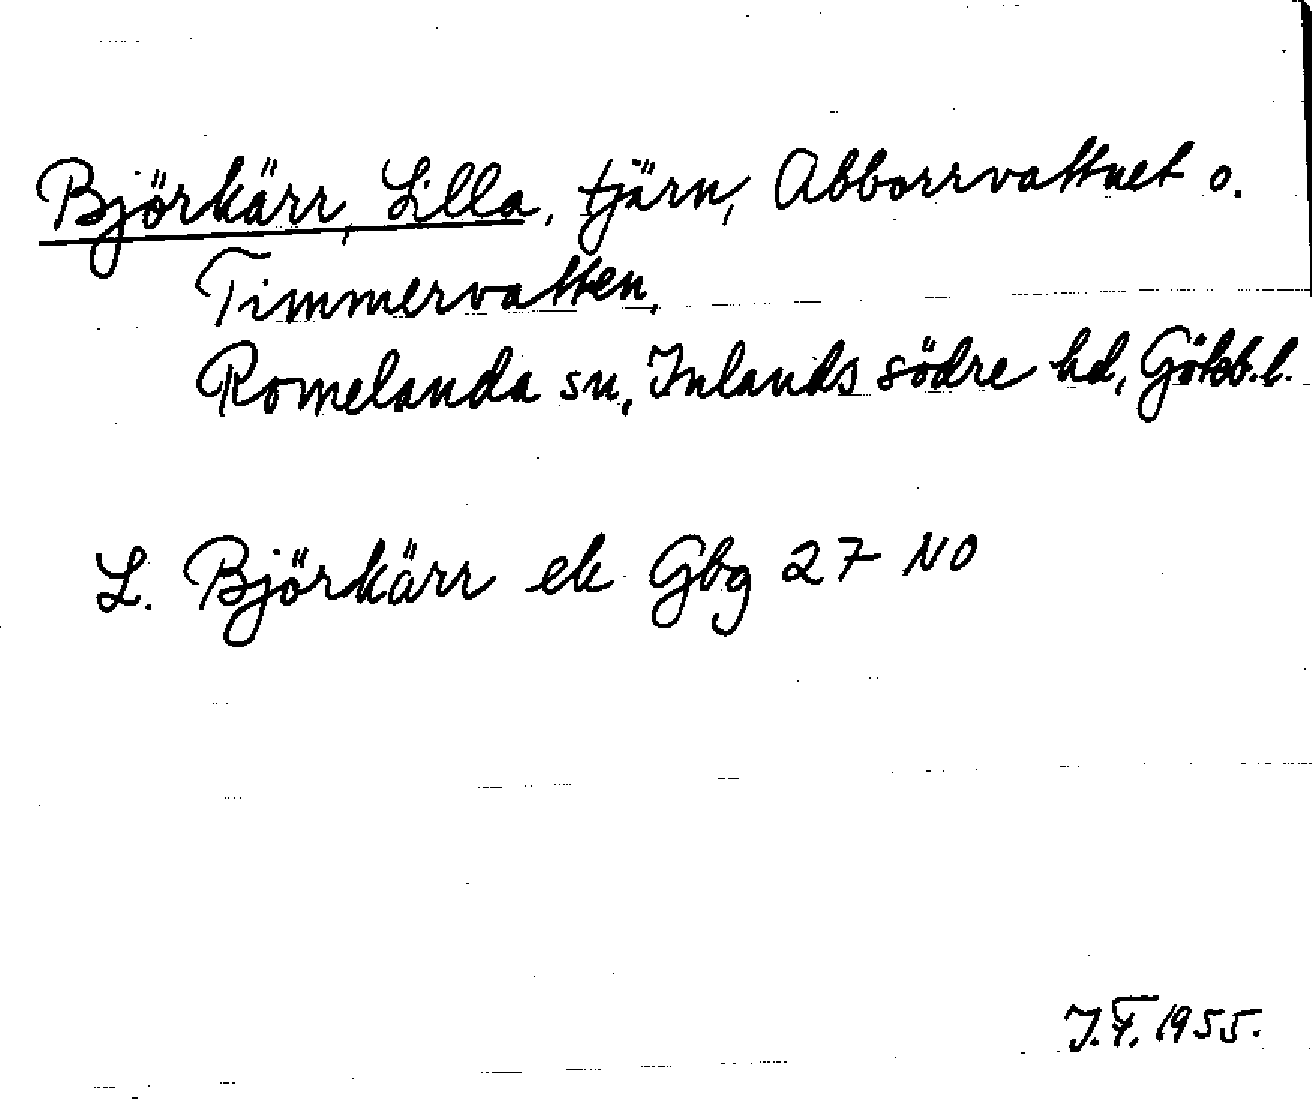 Björkärr, Lilla, tjärn, Abborrvattnet o.
Timmervatten,
Romelanda sn, Inlands södre hd, Götebb.l.
L. Björkärr ek Gbg 27 NO
J.F. 1955.